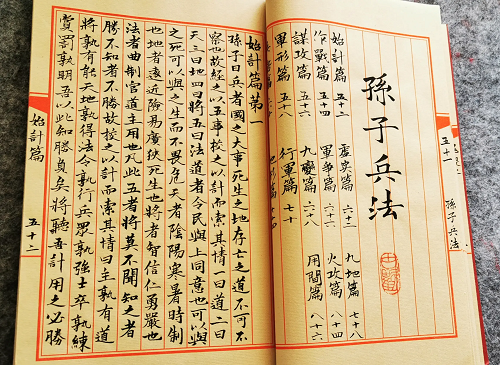 孫子兵法
孫子兵法
始計篇 五十二
作戰篇 五十四
謀攻篇 五十六
軍形篇 五十八
虛實篇
軍爭篇
九變篇 六十八
行軍篇 七十
九地篇 七十八
火攻篇 八十四
用間篇 八十六
始計篇第一
孫子曰兵者國之大事死生之地存亡之道不可不
察也故經之以五事校之以計而索其情一曰道二曰
天三曰地四曰將五曰法道者令民與上同意也可以與
之死可以與之生而不畏危天者陰陽寒暑時制
也地者遠近險易廣狹死生也將者智信仁勇嚴也
法者曲制官道主用也凡此五者將莫不聞知之者
勝不知者不勝故校之以計而索其情曰主孰有道
將孰有能天地孰得法令孰行兵眾孰強士卒孰練
賞罰孰明吾以此知勝負矣將聽吾計用之必勝
始計篇
五十二